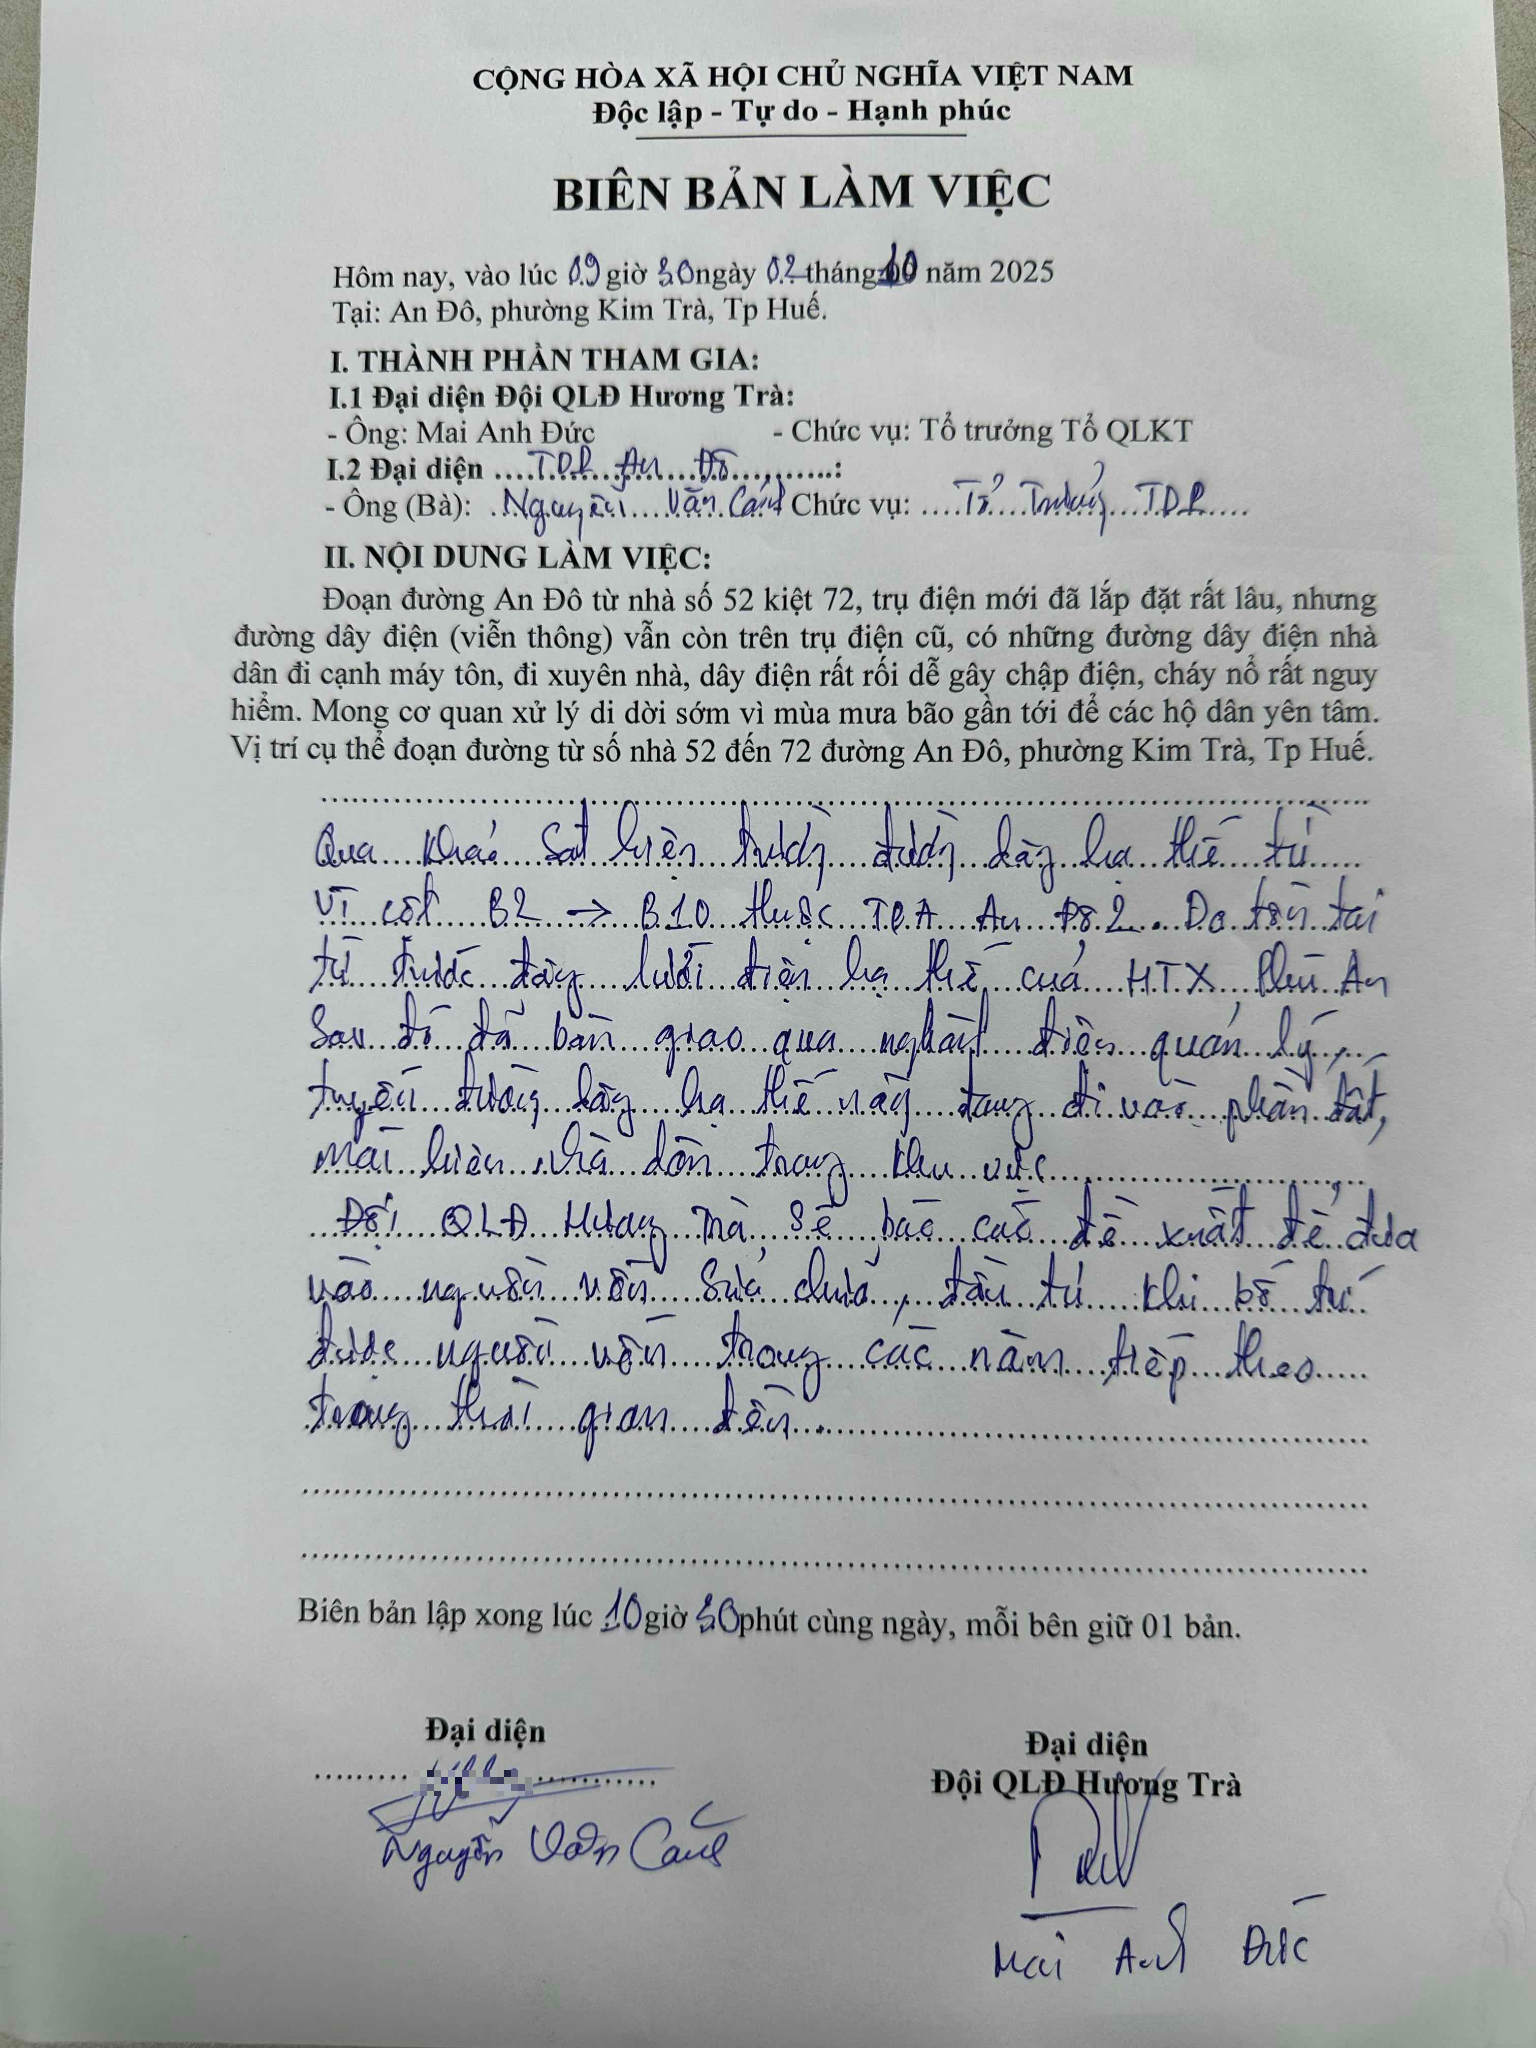 CỘNG HÒA XÃ HỘI CHỦ NGHĨA VIỆT NAM
Độc lập - Tự do - Hạnh phúc
BIÊN BẢN LÀM VIỆC
Hôm nay, vào lúc 09 giờ 30 ngày 02 tháng 10 năm 2025
Tại: An Đô, phường Kim Trà, Tp Huế.
I. THÀNH PHẦN THAM GIA:
I.1 Đại diện Đội QLĐ Hương Trà:
- Ông: Mai Anh Đức - Chức vụ: Tổ trưởng Tổ QLKT
I.2 Đại diện ....TDP An Đô..........:
- Ông (Bà): Nguyễn Văn Cảnh Chức vụ: ....Tổ Trưởng TDP....
II. NỘI DUNG LÀM VIỆC:
Đoạn đường An Đô từ nhà số 52 kiệt 72, trụ điện mới đã lắp đặt rất lâu, nhưng
đường dây điện (viễn thông) vẫn còn trên trụ điện cũ, có những đường dây điện nhà
dân đi cạnh máy tôn, đi xuyên nhà, dây điện rất rối dễ gây chập điện, cháy nổ rất nguy
hiểm. Mong cơ quan xử lý di dời sớm vì mùa mưa bão gần tới để các hộ dân yên tâm.
Vị trí cụ thể đoạn đường từ số nhà 52 đến 72 đường An Đô, phường Kim Trà, Tp Huế.
Qua khảo sát hiện trường đường dây hạ thế từ
vị cột B2 → B10 thuộc TBA An Đô 2. Do tồn tại
từ trước đây lưới điện hạ thế của HTX Phú An
Sau đó đã bàn giao qua nghành điện quản lý,
tuyến đường dây hạ thế này đang đi vào phần đất,
mái hiên nhà dân trong khu vực
Đội QLĐ Hương Trà sẽ báo cáo đề xuất để đưa
vào nguồn vốn Sửa chữa, đầu tư khi bố trí
được nguồn vốn trong các năm tiếp theo
trong thời gian đến.
Biên bản lập xong lúc 10 giờ 30 phút cùng ngày, mỗi bên giữ 01 bản.
Đại diện
Nguyễn Văn Cảnh
Đại diện
Đội QLĐ Hương Trà
Mai Anh Đức